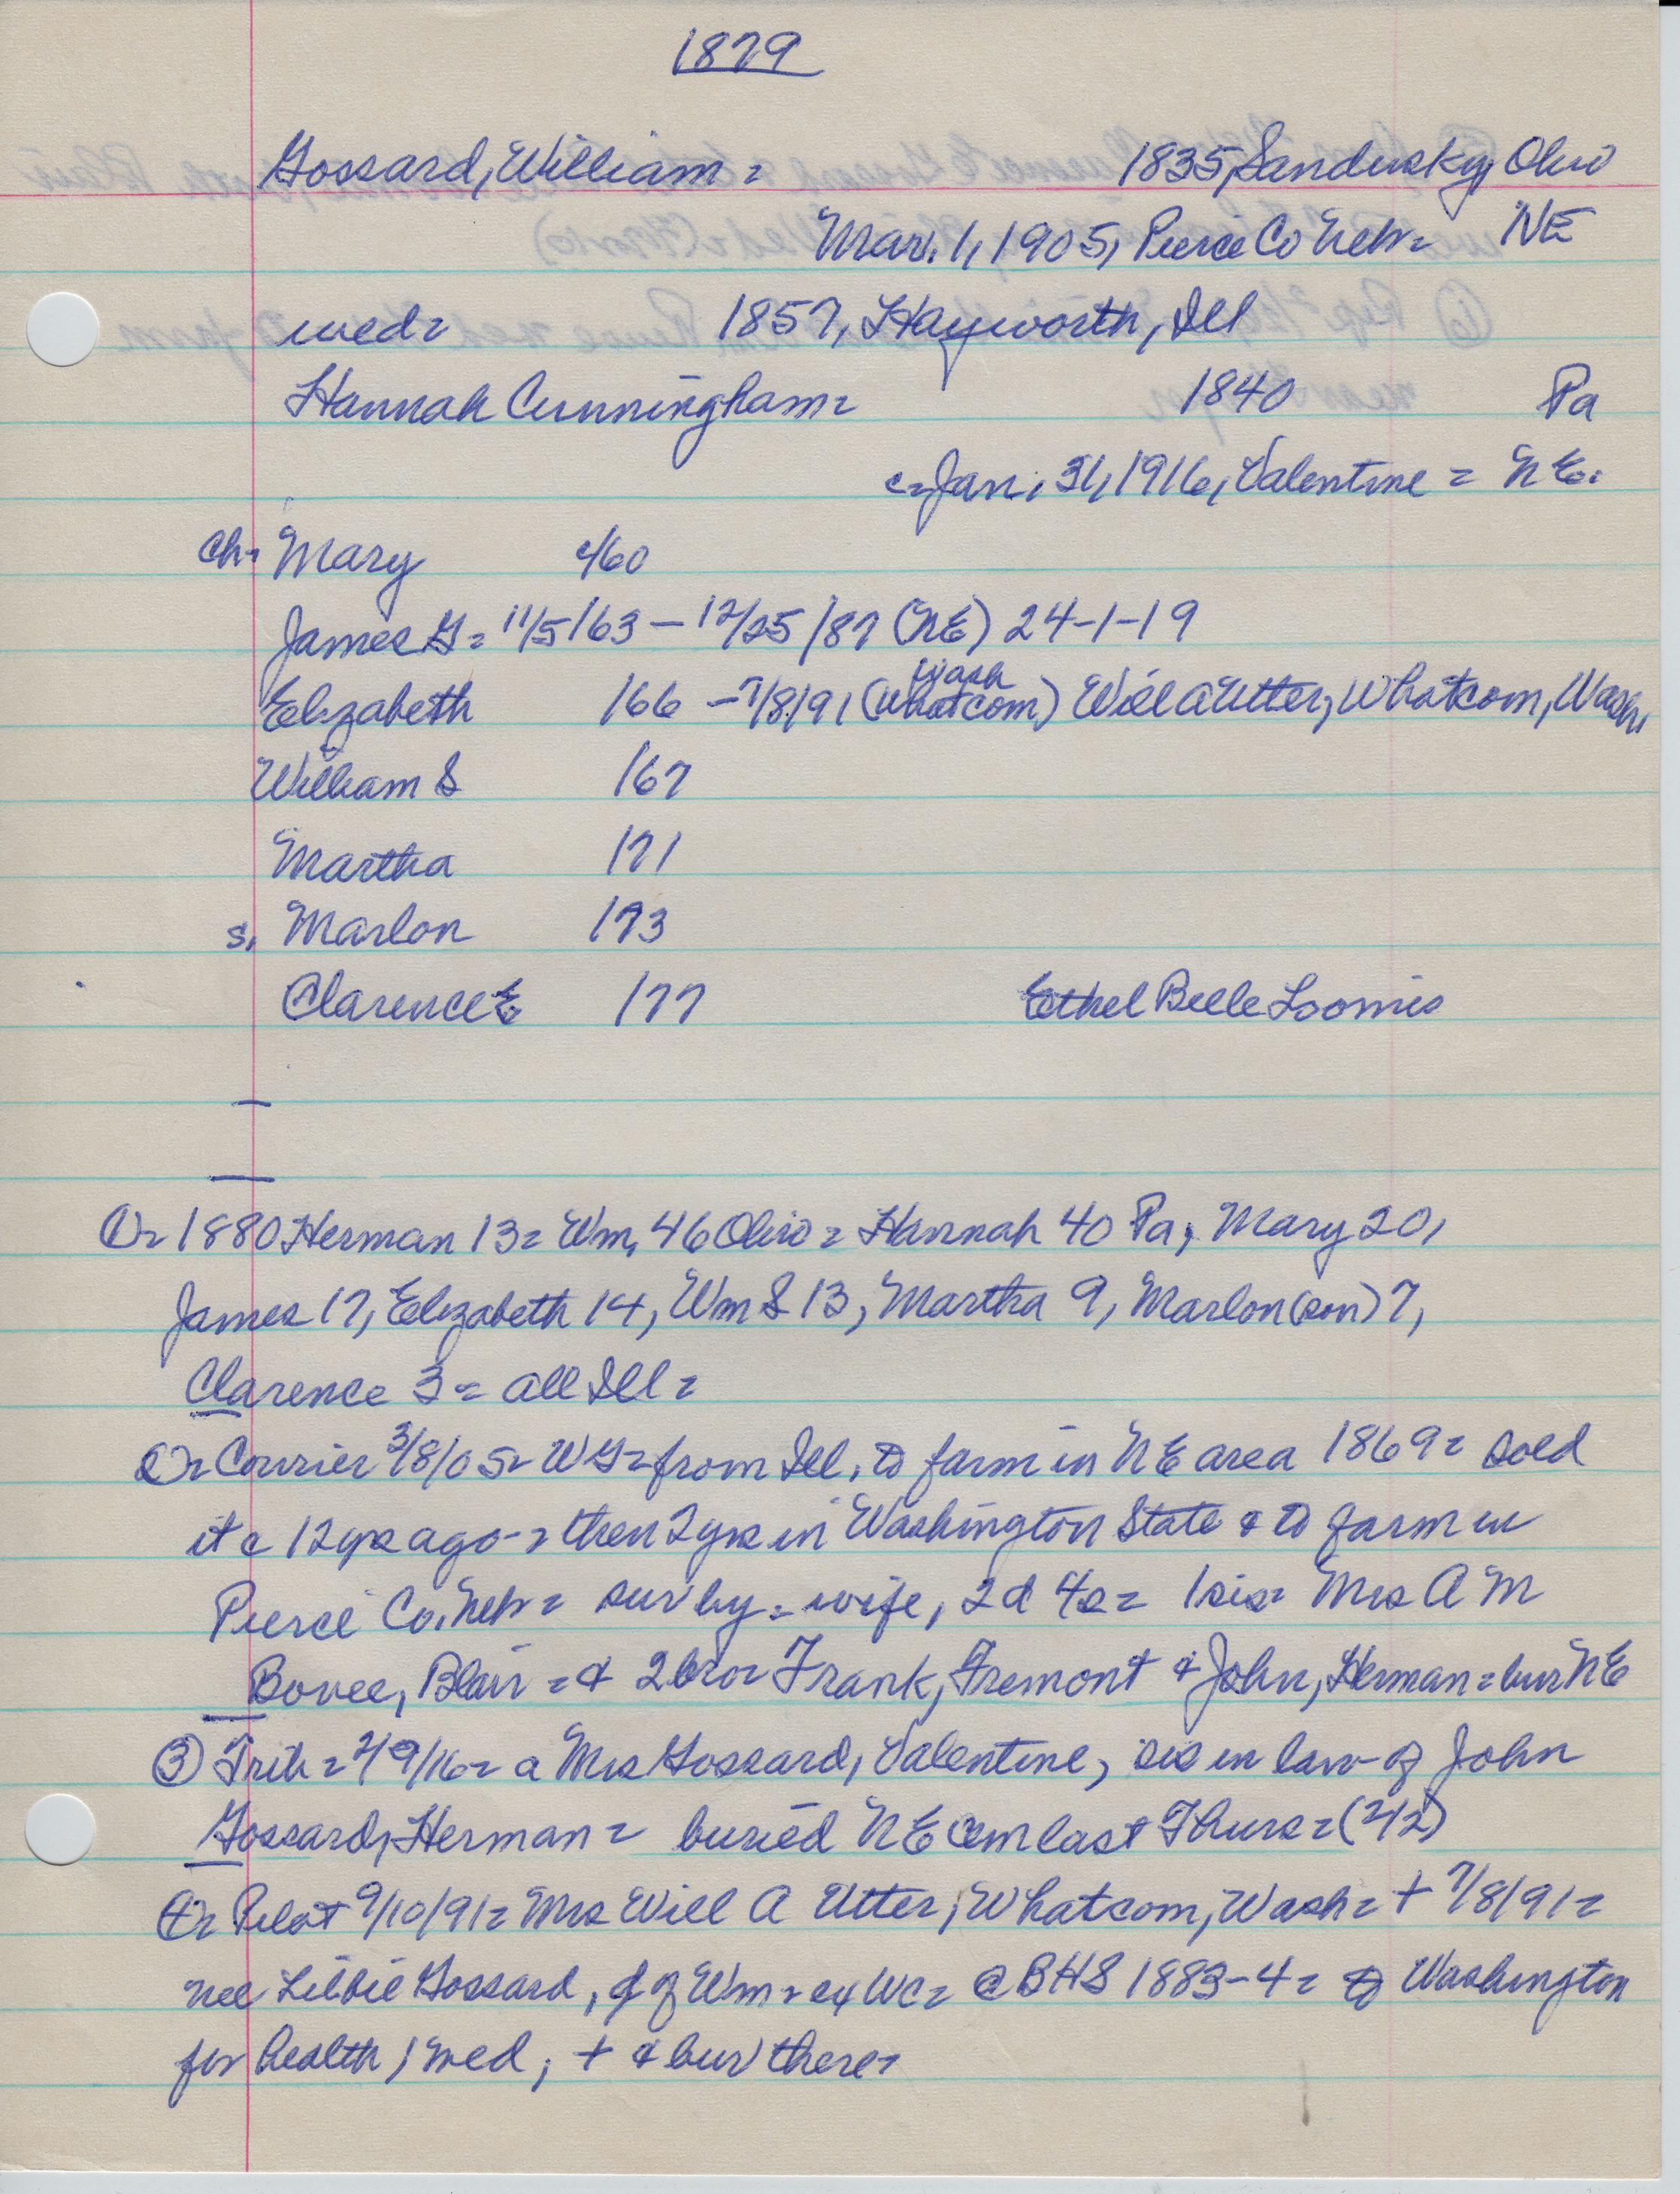 1879
Gossard, William = 1835, Sandusky, Ohio
Mar. 1, 1905, Pierce Co Neb = NE
wed = 1857, Hayworth, Ill
Hannah Cunningham = 1840 Pa
c = Jan. 31, 1916, Valentine = NE.
Ch = Mary c/60
James G = 11/5/63 - 12/25/87 (NE) 24-1-19
Wash
Elizabeth /66 - 7/8/91 (Whatcom) Will A Utter, Whatcom, Wash.
William S /67
Martha /71
s. Marlon /73
Clarence E /77 Ethel Belle Loomis
① = 1880 Herman 13 = Wm, 46 Ohio = Hannah 40 Pa, Mary 20,
James 17, Elizabeth 14, Wm S 13, Martha 9, Marlon (son) 7,
Clarence 3 = all Ill =
② = Courier 3/8/05 = WG = from Ill. to farm in NE area 1869 = sold
it c 12 yrs ago = then 2 yrs in Washington State & to farm in
Pierce Co. Neb = sur by = wife, 2d 4s = 1 sis = Mrs A M
Bovee, Blair = & 2 bro = Frank, Fremont & John, Herman = bur NE
③ Trib = 2/9/16 = a Mrs Gossard, Valentine, sis in law of John
Gossard, Herman = buried NE Cem last Thurs = (2/2)
④ = Pilot 9/10/91 = Mrs Will A Utter, Whatcom, Wash = + 7/8/91 =
nee Libbie Gossard, d of Wm = ex WC = @ BHS 1883-4 = to Washington
for health, wed, + & bur there =